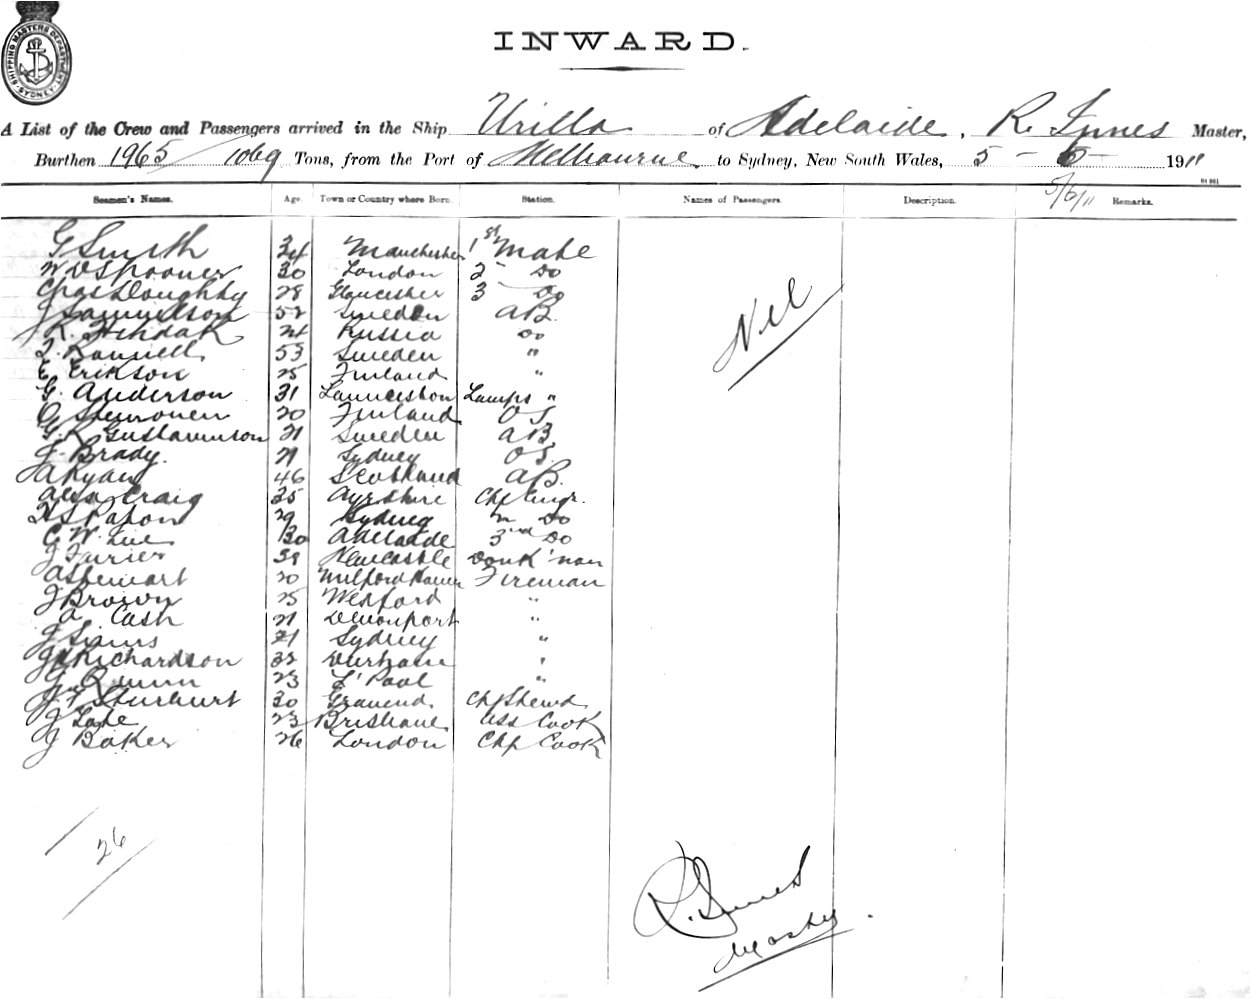 SHIPPING MASTERS DEPARTMENT SYDNEY
INWARD.
A List of the Crew and Passengers arrived in the Ship Urilla of Adelaide, R. Innes Master,
Burthen 1965/1069 Tons, from the Port of Melbourne to Sydney, New South Wales, 5 - 6 - 1911
5/6/11
Seamen's Names. Age. Town or Country where Born. Station. Names of Passengers. Description. Remarks.
G Smith 34 Manchester 1st Mate
W D Spooner 30 London 2 Do
Chas Doughty 28 Gloucester 3 Do
J Samuelson 52 Sweden AB.
K. 24 Russia Do
53 Sweden "
E Erikson 25 Finland "
G. Anderson 31 Launceston Lamps "
20 Finland OS
G. K 21 Sweden AB
J. Brady. 21 Sydney OS.
A Ryan 46 Scotland AB.
Alex Craig 35 Ayrshire Chf Engr.
H S Papon 29 Sydney 2n Do
C W. 30 Adelaide 3rd Do
J Turier 39 Newcastle Donk'man
A Stewart 20 Milford Haven Fireman
J Brown 25 Wexford "
A Cash 21 Devonport "
J Sims 21 Sydney "
J Richardson 32 Durham "
G Quinn 23 L'Pool "
30 Gravend. Chf Stewd
J Tate 23 Brisbane Ass Cook
J Baker 26 London Chf Cook
Nil
26
R. Innes
Master.